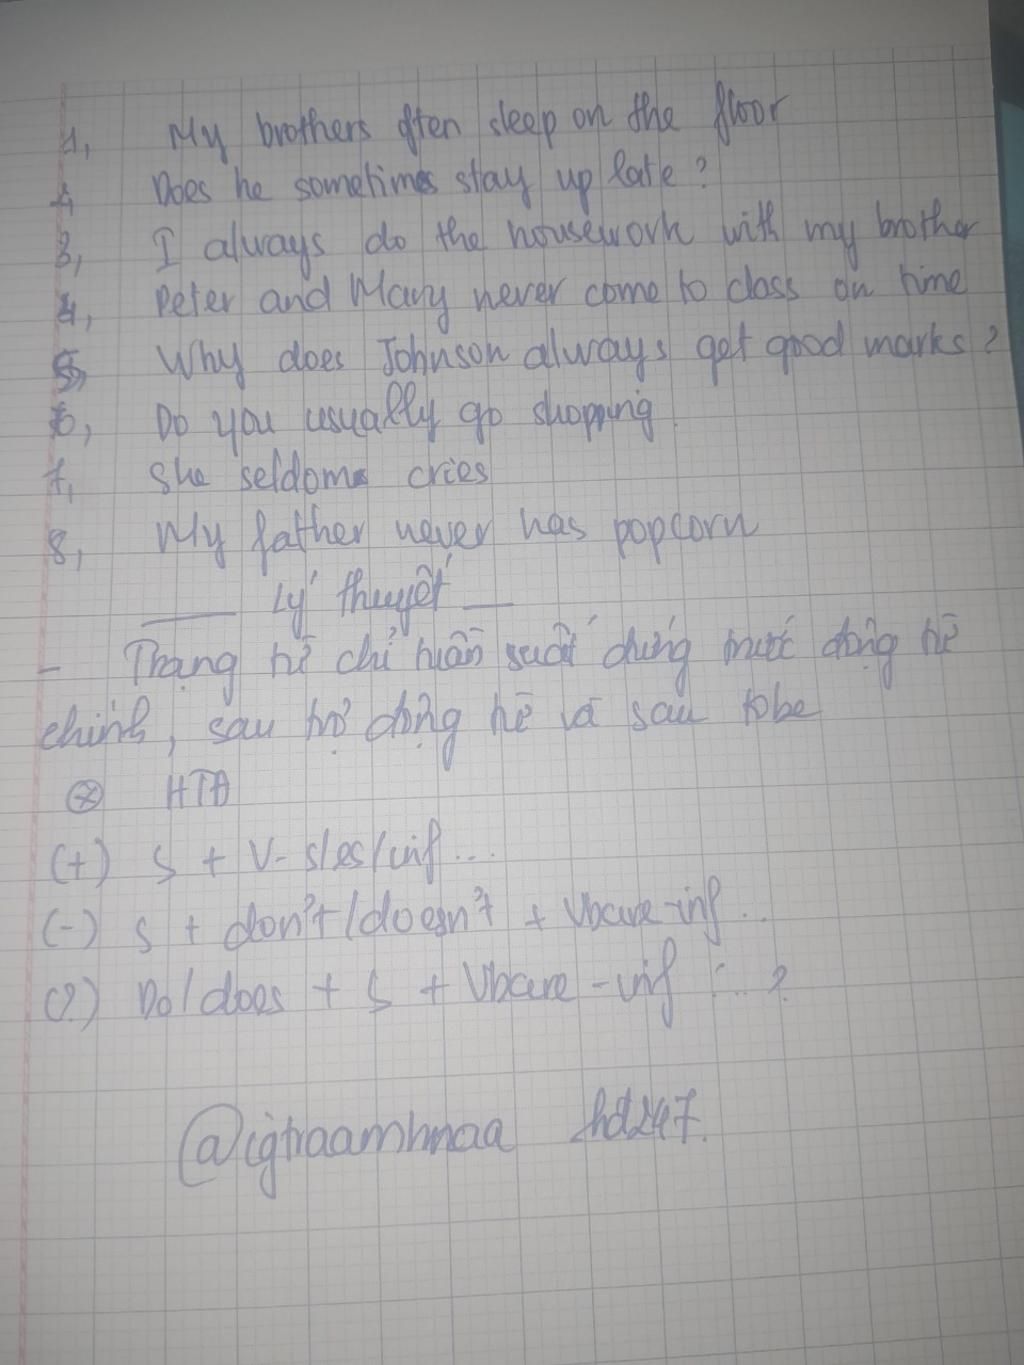 1, My brothers often sleep on the floor
Does he sometimes stay up late?
3, I always do the housework with my brother
4, Peter and Mary never come to class on time
5, Why does Johnson always get good marks?
6, Do you usually go shopping
7, She seldom cries
8, My father never has popcorn
Lý thuyết
- Trạng từ chỉ tần suất đứng trước động từ
chính, sau trợ động từ và sau tobe
⊗ HTĐ
(+) S + V-s/es/inf...
(-) S + don't/doesn't + Vbare-inf...
(?) Do/does + S + Vbare-inf ...?
@igtraamhnaa hd247